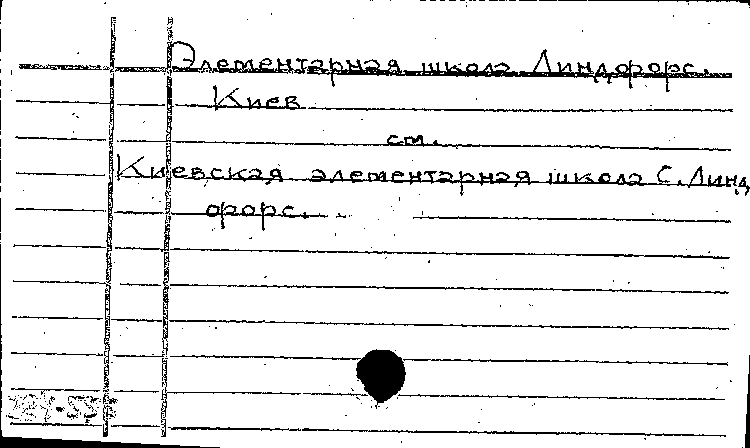 Элементарная школа Линдфорс.
Киев
см.
Киевская элементарная школа С. Линд
форс.